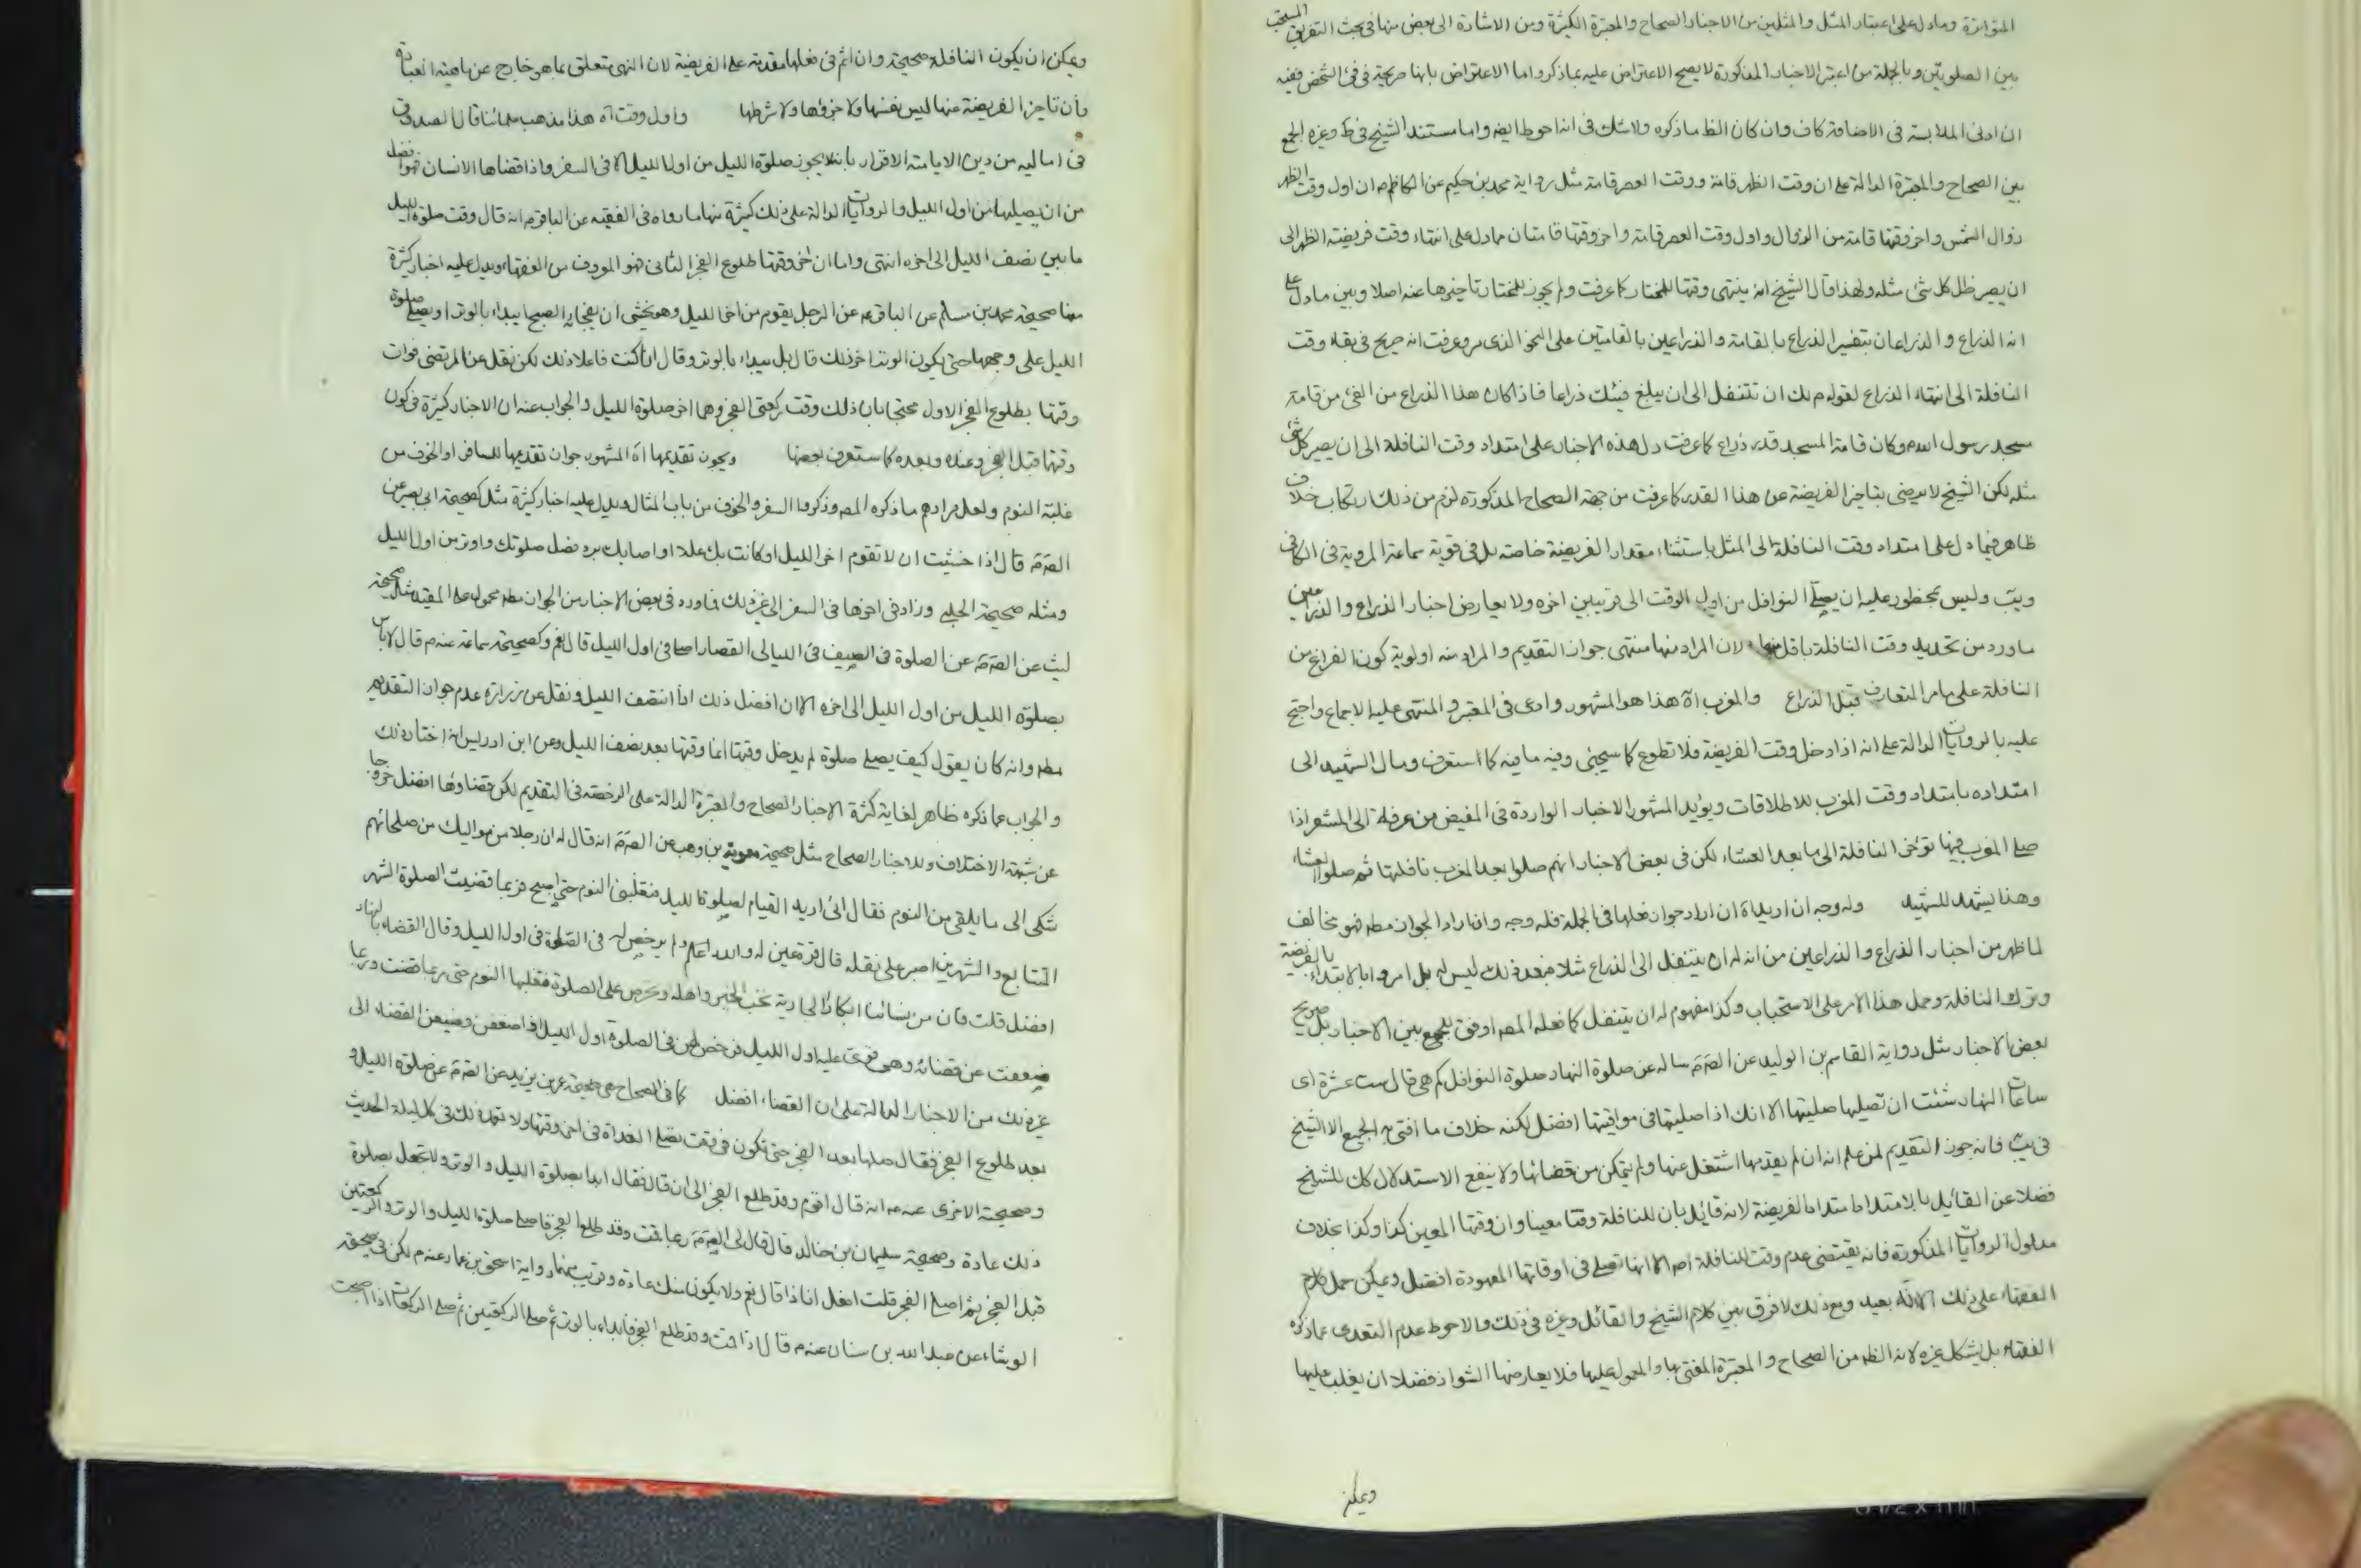 المتواترة ومادل على اعتبار المثل والمثلين من الاخبار الصحاح والمعتبرة الكثيرة ومن الاشارة الى بعض منها فى بحث التفريق المستحب
بين الصلوتين وبالجملة من اعتبر الاخبار المذكورة لا يصح الاعتراض عليه بماذكر واما الاعتراض بانها صريحة فى فئ الشخص ففيه
ان ادنى الملابسة فى الاضافة كاف وان كان الظ ماذكره ولاشك فى انه احوط ايضا واما مستند الشيخ فى ط وغيره الجمع
بين الصحاح والمعتبرة الدالة على ان وقت الظهر قامة ووقت العصر قامة مثل رواية محمد بن حكيم عن الكاظم م ان اول وقت الظهر
زوال الشمس واخر وقتها قامة من الزوال واول وقت العصر قامة واخر وقتها قامتان ممادل على انتهاء وقت فريضة الظهر الى
ان يصير ظل كل شئ مثله ولهذا قال الشيخ انه ينتهى وقتها للمختار كاعرفت ولم يجوز للمختار تاخيرها عنه اصلا وبين مادل على
انه الذراع والذراعان بتفسير الذراع بالقامة والذراعين بالقامتين على النحو الذى مر وعرفت انه صريح فى بقاء وقت
النافلة الى انتهاء الذراع لقوله م لك ان تتنفل الى ان يبلغ فيئك ذراعا فاذا كان هذا الذراع من الفئ من قامة
مسجد رسول الله م وكان قامة المسجد قدر ذراع كاعرفت دل هذه الاخبار على امتداد وقت النافلة الى ان يصير كل شئ
مثله لكن الشيخ لا يرضى بتاخير الفريضة عن هذا القدر كاعرفت من جهة الصحاح المذكورة لزم من ذلك ارتكاب خلاف
ظاهر فيما دل على امتداد وقت النافلة الى المثل باستثناء مقدار الفريضة خاصة بل فى قوية سماعة المروية فى الكافى
ويب وليس بمحظور عليه ان يصلى النوافل من اول الوقت الى قريب من اخره ولا يعارض اخبار الذراع والذراعين
ماورد من تحديد وقت النافلة باقل منها لان المراد منها منتهى جواز التقديم والمراد منه اولوية كون الفراغ من
النافلة على ماهو المتعارف قبل الذراع والمغرب اه هذا هو المشهور وادعى فى المعتبر والمنتهى عليه الاجماع واحتج
عليه بالروايات الدالة على انه اذا دخل وقت الفريضة فلا تطوع كما سيجئ وفيه مافيه كما ستعرف ومال الشهيد الى
امتداده بامتداد وقت المغرب للاطلاقات ويؤيد المشهور الاخبار الواردة فى المفيض من عرفة الى المشعر اذا
صلى المغرب فيها تؤخر النافلة الى مابعد العشاء لكن فى بعض الاخبار انهم صلوا بعد المغرب نافلتها ثم صلوا العشاء
وهذا يشهد للشهيد وله وجه ان اريد اه ان اراد جواز فعلها فى الجملة فله وجه وان اراد الجواز مطه فهو مخالف
لما ظهر من اخبار الذراع والذراعين من انه له ان يتنفل الى الذراع مثلا فبعد ذلك ليس له بل امروا بالابتداء بالفريضة
وترك النافلة وحمل هذا الامر على الاستحباب وكذا مفهوم له ان يتنفل كما فعله المصه اوفق للجمع بين الاخبار بل صريح
بعض الاخبار مثل رواية القاسم بن الوليد عن الصادق سأله عن صلوة النهار صلوة النوافل كم هى قال ست عشرة اى
ساعات النهار شئت ان تصليها صليتها الا انك اذا صليتها فى مواقيتها افضل لكنه خلاف ما افتى به الجميع الا الشيخ
فى يب فانه جوز التقديم لمن علم انه ان لم يقدمها اشتغل عنها ولم يتمكن من قضائها ولا ينفع الاستدلال كك للشيخ
فضلا عن القائل بالامتداد امتداد الفريضة لانه قائل بان للنافلة وقتا معينا وان وقتها المعين كذا وكذا بخلاف
مدلول الروايات المذكورة فانه يقتضى عدم وقت للنافلة اصلا الا انها تصلى فى اوقاتها المعهودة افضل ويمكن حمل كلام
الفقهاء على ذلك الا انه بعيد ومع ذلك لا فرق بين كلام الشيخ والقائل وغيره فى ذلك والاحوط عدم التعدى عماذكره
الفقهاء بل يشكل غيره لانه الظ من الصحاح والمعتبرة المفتى بها والمعول عليها فلا يعارضها الشواذ فضلا ان يغلب عليها
ويمكن
ويمكن ان يكون النافلة صحيحة وان اثم فى فعلها مقدمة على الفريضة لان النهى تعلق بما هو خارج عن ماهية العبادة
فان تاخير الفريضة عنها ليس نفسها ولا جزؤها ولا شرطها واول وقت اه هذا مذهب علمائنا قال الصدوق
فى اماليه من دين الامامية الاقرار بانه لا يجوز صلوة الليل من اول الليل الا فى السفر واذا قضاها الانسان فهو افضل
من ان يصليها من اول الليل والروايات الدالة على ذلك كثيرة منها مارواه فى الفقيه عن الباقر م انه قال وقت صلوة الليل
مابين نصف الليل الى اخره انتهى واما ان اخر وقتها طلوع الفجر الثانى فهو المعروف من الفقهاء ويدل عليه اخبار كثيرة
منها صحيحة محمد بن مسلم عن الباقر م عن الرجل يقوم من اخر الليل وهو يخشى ان يفجأه الصبح ايبداء بالوتر او يصلى صلوة
الليل على وجهها حتى يكون الوتر اخر ذلك قال بل يبداء بالوتر وقال انا كنت فاعلا ذلك لكن نقل عن المرتضى فوات
وقتها بطلوع الفجر الاول محتجا بان ذلك وقت ركعتى الفجر وهما اخر صلوة الليل والجواب عنه ان الاخبار كثيرة فى كون
وقتها قبل الفجر وعنده وبعده كما ستعرف بعضها ويجوز تقديمها اه المشهور جواز تقديمها للمسافر او الخوف من
غلبة النوم ولعل مرادهم ماذكره المصه وذكروا السفر والخوف من باب المثال ويدل عليه اخبار كثيرة مثل صحيحة ابى بصير عن
الصادق قال اذا خشيت ان لا تقوم اخر الليل او كانت بك علة او اصابك برد فصل صلوتك واوتر من اول الليل
ومثله صحيحة الحلبى وزاد فى اخرها فى السفر الى غير ذلك فما ورد فى بعض الاخبار من الجواز مطه محمول على المقيد مثل صحيحة
ليث عن الصادق عن الصلوة فى الصيف فى الليالى القصار اصلى فى اول الليل قال نعم وكصحيحة سماعة عنه م قال لا باس
بصلوة الليل من اول الليل الى اخره الا ان افضل ذلك اذا انتصف الليل ونقل عن زرارة عدم جواز التقديم
مطه وانه كان يقول كيف يصلى صلوة لم يدخل وقتها انما وقتها بعد نصف الليل وعن ابن ادريس انه اختار ذلك
والجواب عما ذكره ظاهر لغاية كثرة الاخبار الصحاح والمعتبرة الدالة على الرخصة فى التقديم لكن قضاؤها افضل خروجا
عن شبهة الاختلاف وللاخبار الصحاح مثل صحيحة معوية بن وهب عن الصادق انه قال له ان رجلا من مواليك من صلحائهم
شكى الى مايلقى من النوم فقال انى اريد القيام لصلوة الليل فيغلبنى النوم حتى اصبح فربما قضيت الصلوة الشهر
المتتابع والشهرين اصبر على ثقله قال قرة عين له والله اسلم ولم يرخص له فى الصلوة فى اول الليل وقال القضاء بالنهار
افضل قلت فان من نسائنا ابكارا الجارية تحب الخير واهله وتحرص على الصلوة فغلبها النوم حتى ربما قضت وربما
ضعفت عن قضائه وهى تقوى عليه اول الليل فرخص لهن فى الصلوة اول الليل اذا ضعفن وضيعن القضاء الى
غير ذلك من الاخبار الدالة على ان القضاء افضل كما فى الصحاح هى صحيحة عمر بن يزيد عن الصادق عن صلوة الليل و
بعد طلوع الفجر فقال صلها بعد الفجر حتى تكون فى وقت تصلى الغداة فى اخر وقتها ولا تعمد ذلك فى كل ليلة الحديث
وصحيحته الاخرى عنه م انه قال اقوم وقد طلع الفجر الى ان قال فقال ابدا بصلوة الليل والوتر ولا تجعل بصلوة
ذلك عادة وصحيحة سليمان بن خالد قال قال لى الصادق ربما قمت وقد طلع الفجر فاصلى صلوة الليل والوتر والركعتين
قبل الفجر ثم اصلى الفجر قلت افعل انا ذا قال نعم ولا يكون منك عادة وقريب منها رواية اسحق بن عمار عنه م لكن فى صحيحة
الوشاء عن عبدالله بن سنان عنه م قال اذا قمت وقد طلع الفجر فابداء بالوتر ثم صل الركعتين ثم صل الركعات اذا اصبحت